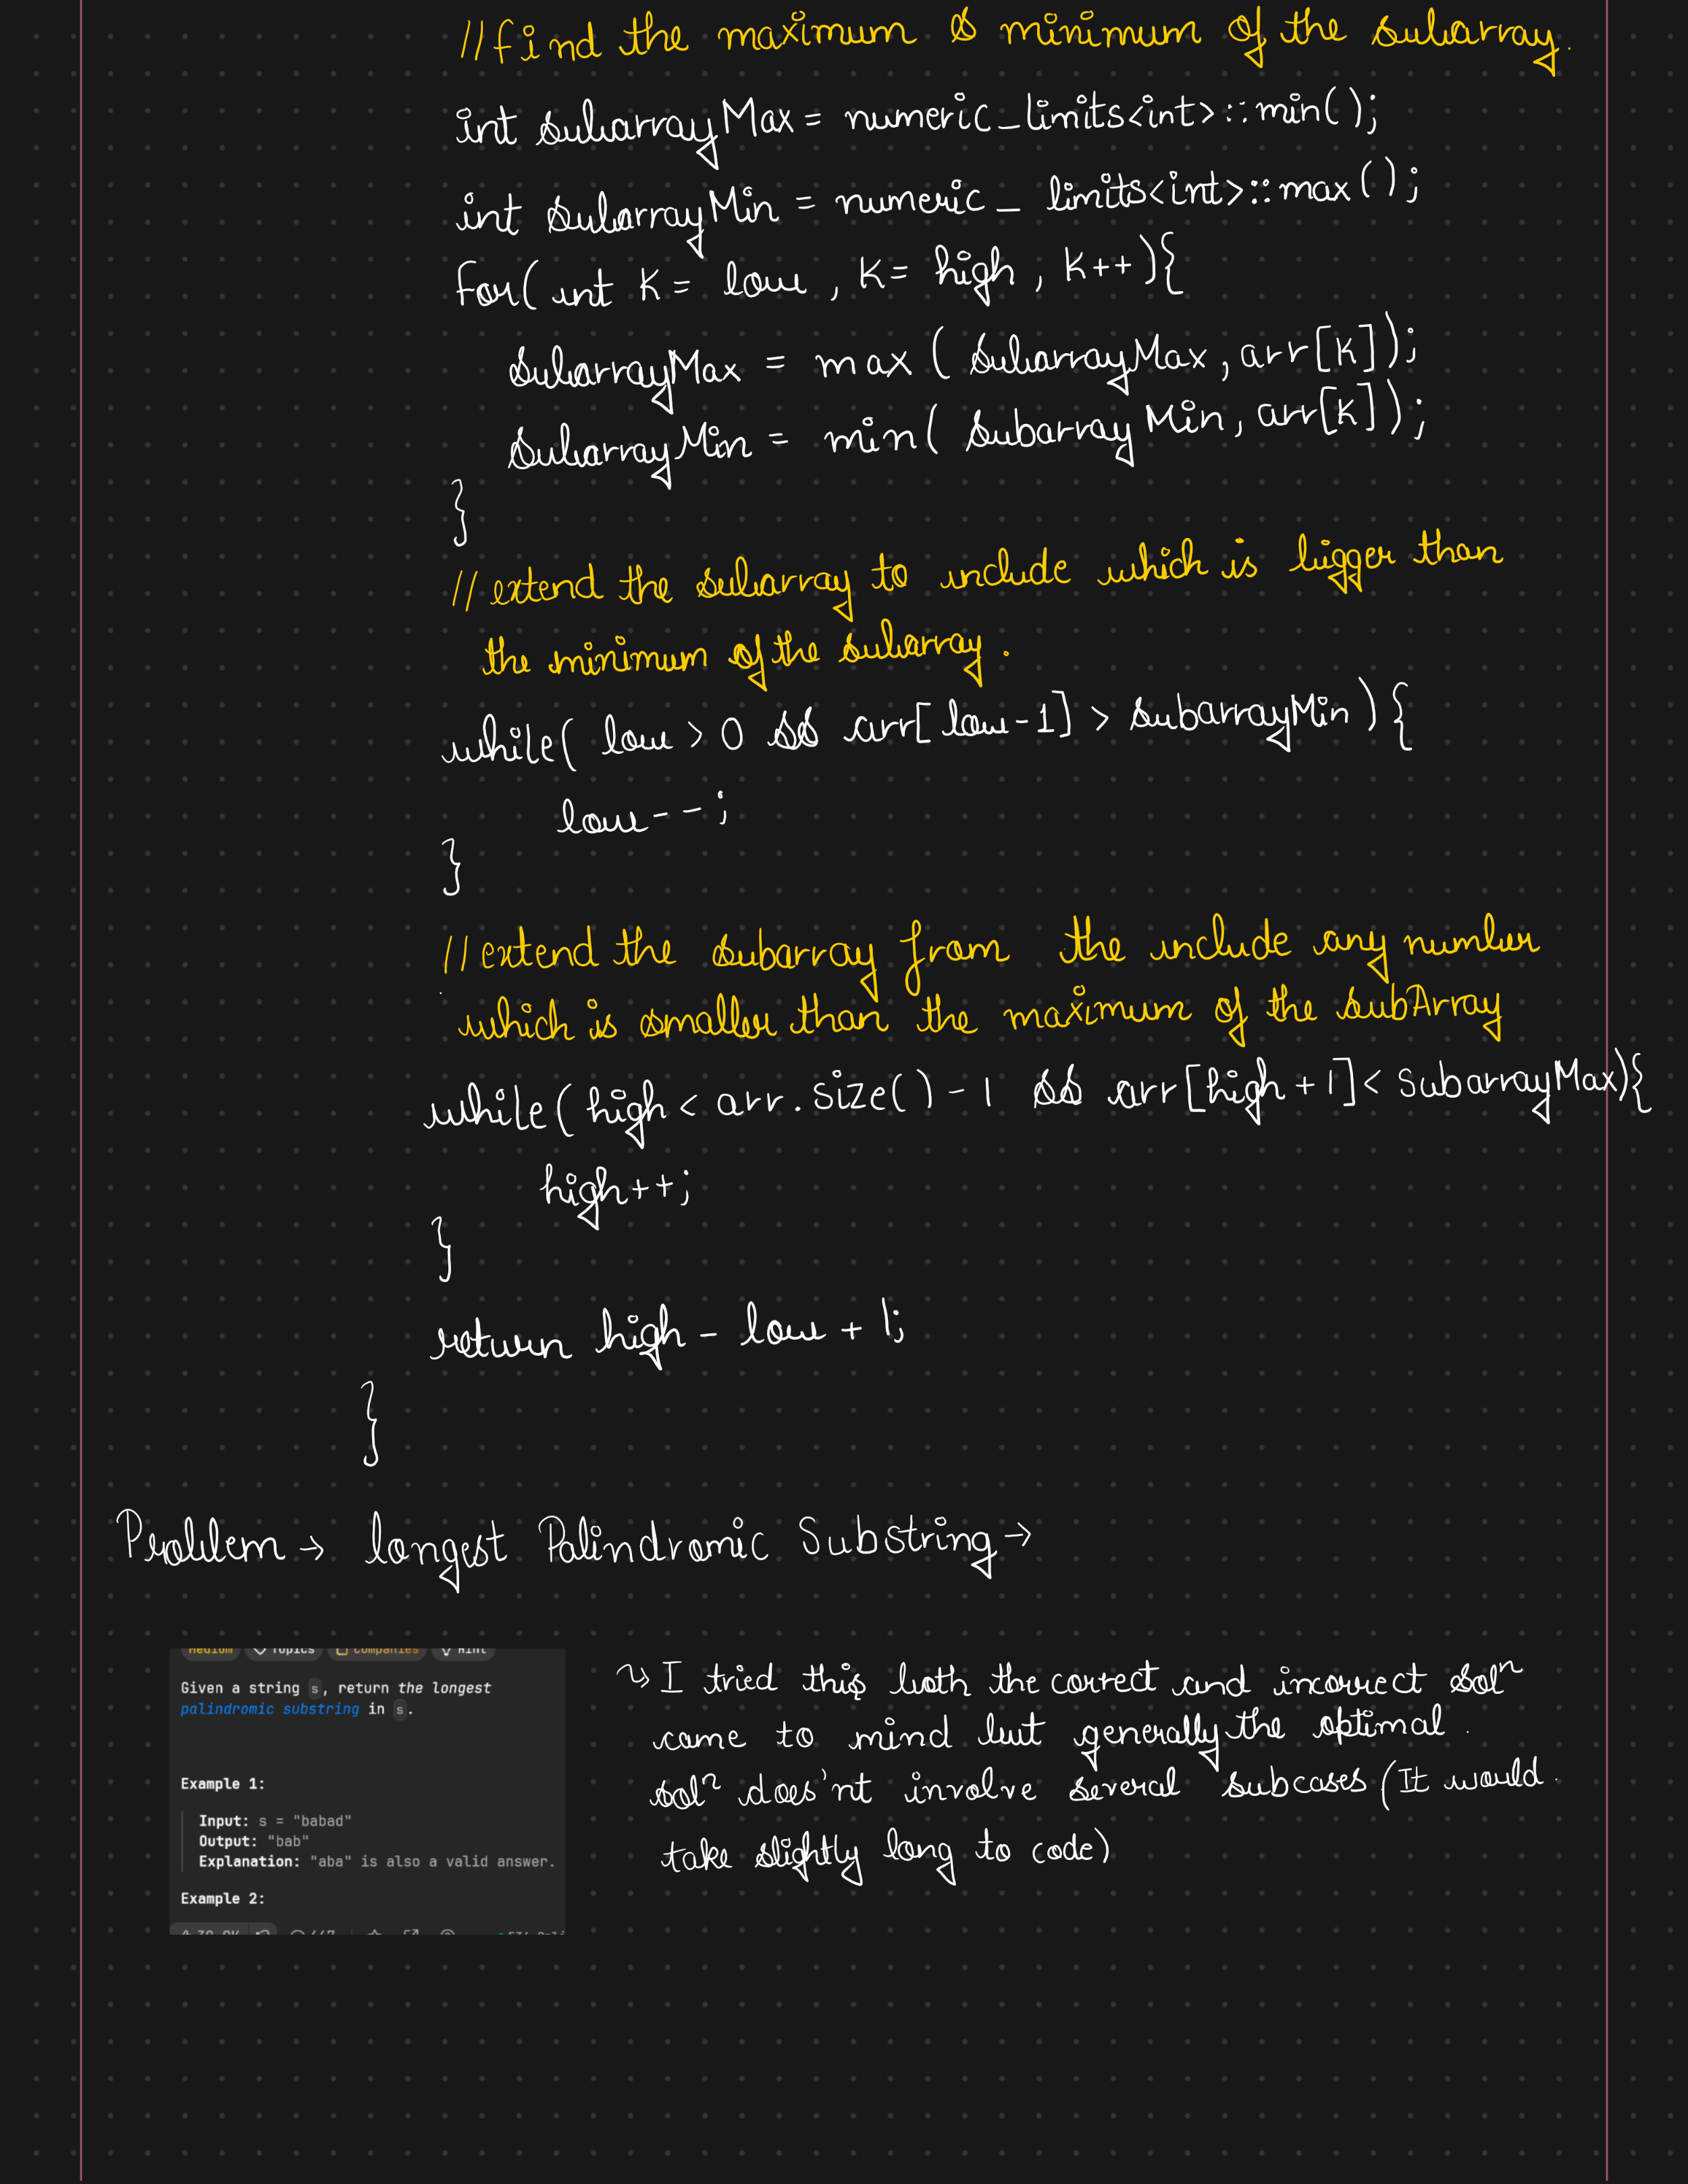 //find the maximum & minimum of the subarray.
int subarrayMax = numeric_limits<int>::min();
int subarrayMin = numeric_limits<int>::max();
for( int K = low , K = high , K++){
subarrayMax = max ( subarrayMax, arr[K]);
subarrayMin = min( subarray Min, arr[K]);
}
// extend the subarray to include which is bigger than
the minimum of the subarray.
while( low > 0 && arr[low-1] > subarrayMin ) {
low--;
}
//extend the subarray from the include any number
which is smaller than the maximum of the subArray
while( high < arr.size() - 1 && arr[high + 1] < SubarrayMax){
high++;
}
return high - low + 1;
}
Problem → longest Palindromic Substring →
Medium Topics Companies Hint
Given a string s, return the longest
palindromic substring in s.
Example 1:
Input: s = "babad"
Output: "bab"
Explanation: "aba" is also a valid answer.
Example 2:
I tried this both the correct and incorrect solⁿ
came to mind but generally the optimal.
solⁿ does'nt involve several subcases (It would.
take slightly long to code)